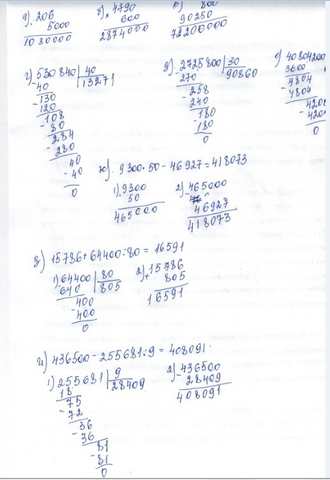 а) 206
5000
1030000
б) 4790
600
2874000
800
90250
72200000
г) 530840 | 40
40 13271
-130
120
-108
80
-284
280
-40
40
0
д) 2725800 | 30
270 90860
-258
240
-180
180
0
е) 40804200
3600
-4804
4804
-420
420
0
ж) 9300·50-46927=418073
1) 9300
50
465000
2) -465000
46927
418073
з) 15786+64400:80=16591
1) 64400 | 80
-640 805
400
-400
0
2) 15786
+ 805
16591
и) 436500-255681:9=408091
1) 255681 | 9
18 28409
-75
72
-36
36
-81
81
0
2) -436500
28409
408091